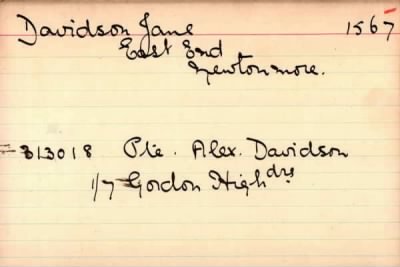 Davidson Jane 1567
East End
Newtonmore.
313018 Pte. Alex. Davidson
1/7 Gordon Highdrs